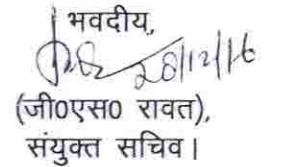 भवदीय,
28/12/16
(जी0एस0 रावत),
संयुक्त सचिव।